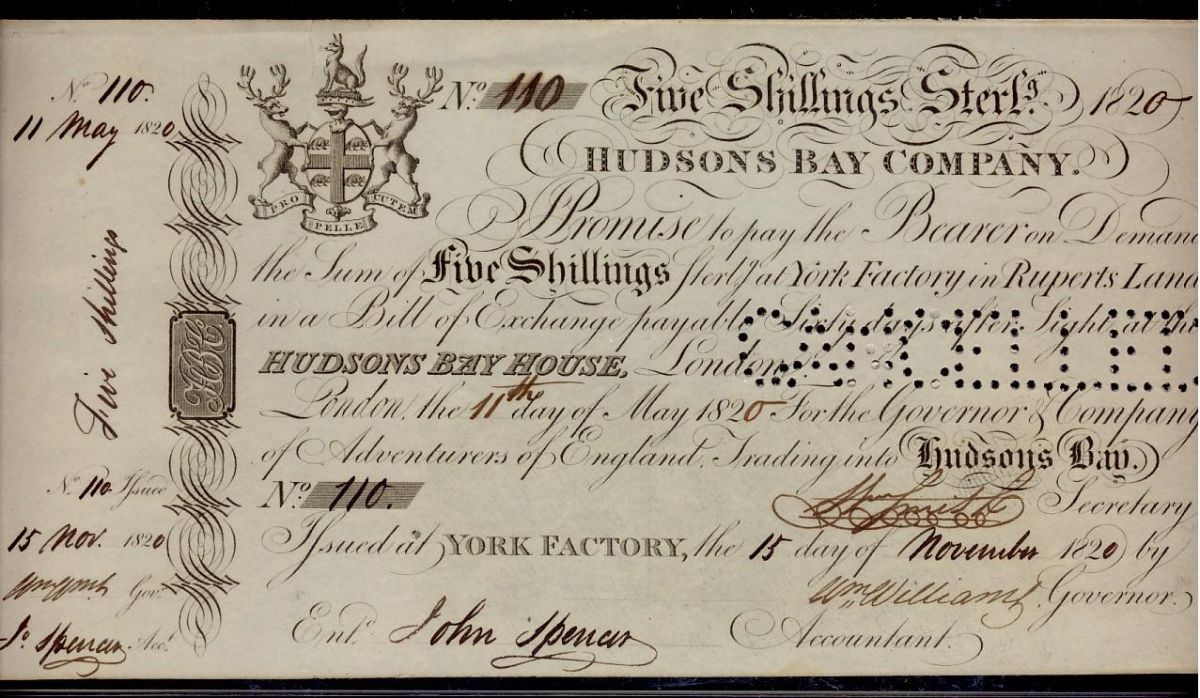 No. 110.
11 May 1820
Five shillings
HBC
No. 110 Issued
15 Nov. 1820
Govr.
Jo. Spencer Acct.
PRO PELLE CUTEM
No. 110 Five Shillings Sterlg. 1820
HUDSONS BAY COMPANY.
I Promise to pay the Bearer on Deman
the Sum of Five Shillings Sterlg. at York Factory in Ruperts Land
in a Bill of Exchange payable Sixty days after Sight, at the
HUDSONS BAY HOUSE, London.
CANCELLED
London, the 11th day of May 1820 For the Governor & Company
of Adventurers of England, Trading into Hudsons Bay.
No. 110.
Wm Smith Secretary
Issued at YORK FACTORY, the 15 day of November 1820 by
Wm. Williams Governor.
Entd. John Spencer Accountant.